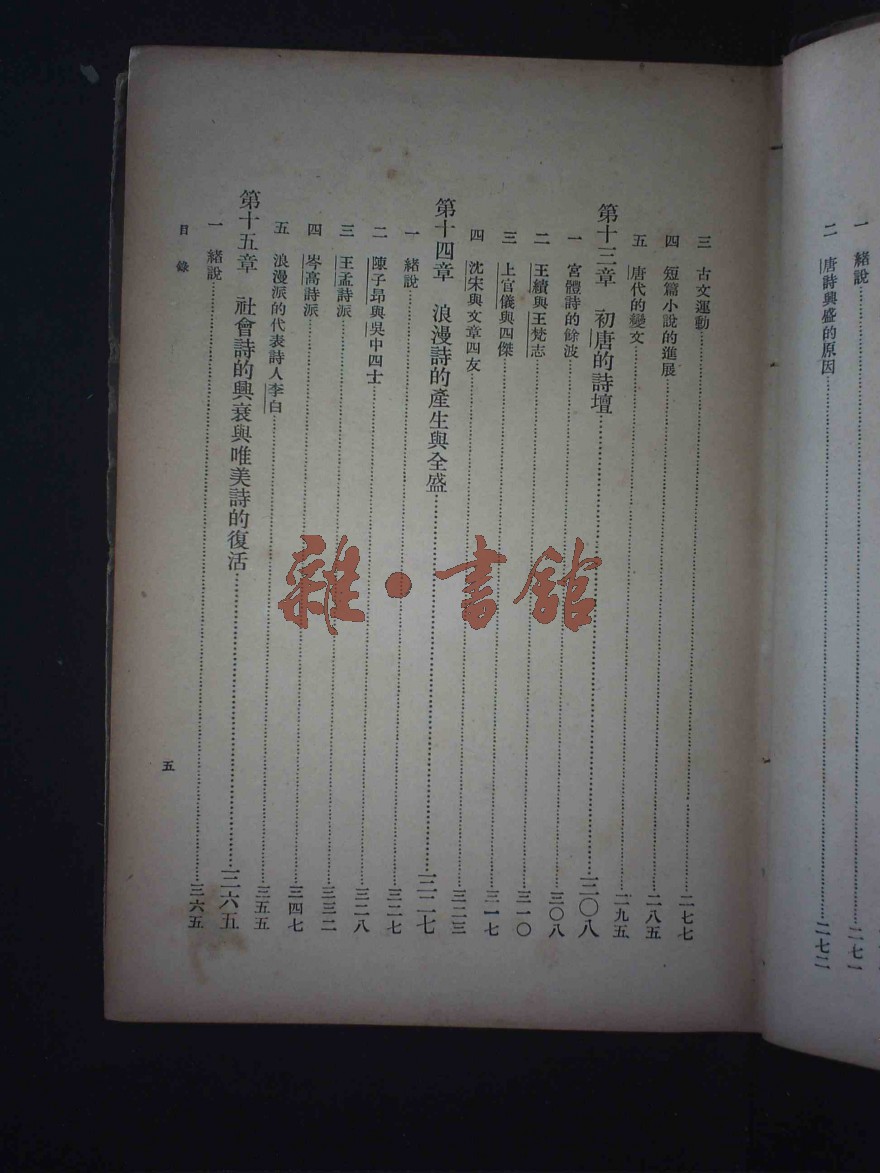 一 緒說 二七一
二 唐詩興盛的原因 二七二
三 古文運動 二七七
四 短篇小說的進展 二八五
五 唐代的變文 二九五
第十三章 初唐的詩壇 三〇八
一 宮體詩的餘波 三〇八
二 王績與王梵志 三一〇
三 上官儀與四傑 三一七
四 沈宋與文章四友 三二三
第十四章 浪漫詩的產生與全盛 三二七
一 緒說 三二七
二 陳子昂與吳中四士 三二八
三 王孟詩派 三三二
四 岑高詩派 三四七
五 浪漫派的代表詩人李白 三五五
第十五章 社會詩的興衰與唯美詩的復活 三六五
一 緒說 三六五
目錄
五
雜·書館